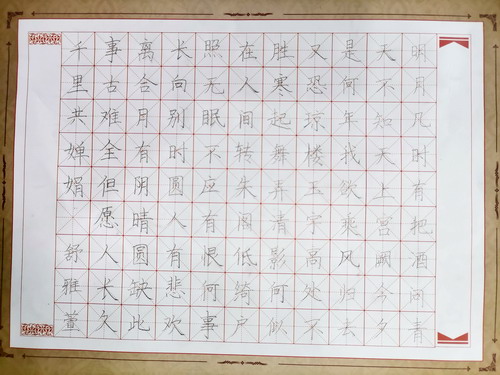 明月几时有把酒问青
天不知天上宫阙今夕
是何年我欲乘风归去
又恐琼楼玉宇高处不
胜寒起舞弄清影何似
在人间转朱阁低绮户
照无眠不应有恨何事
长向别时圆人有悲欢
离合月有阴晴圆缺此
事古难全但愿人长久
千里共婵娟 舒雅萱